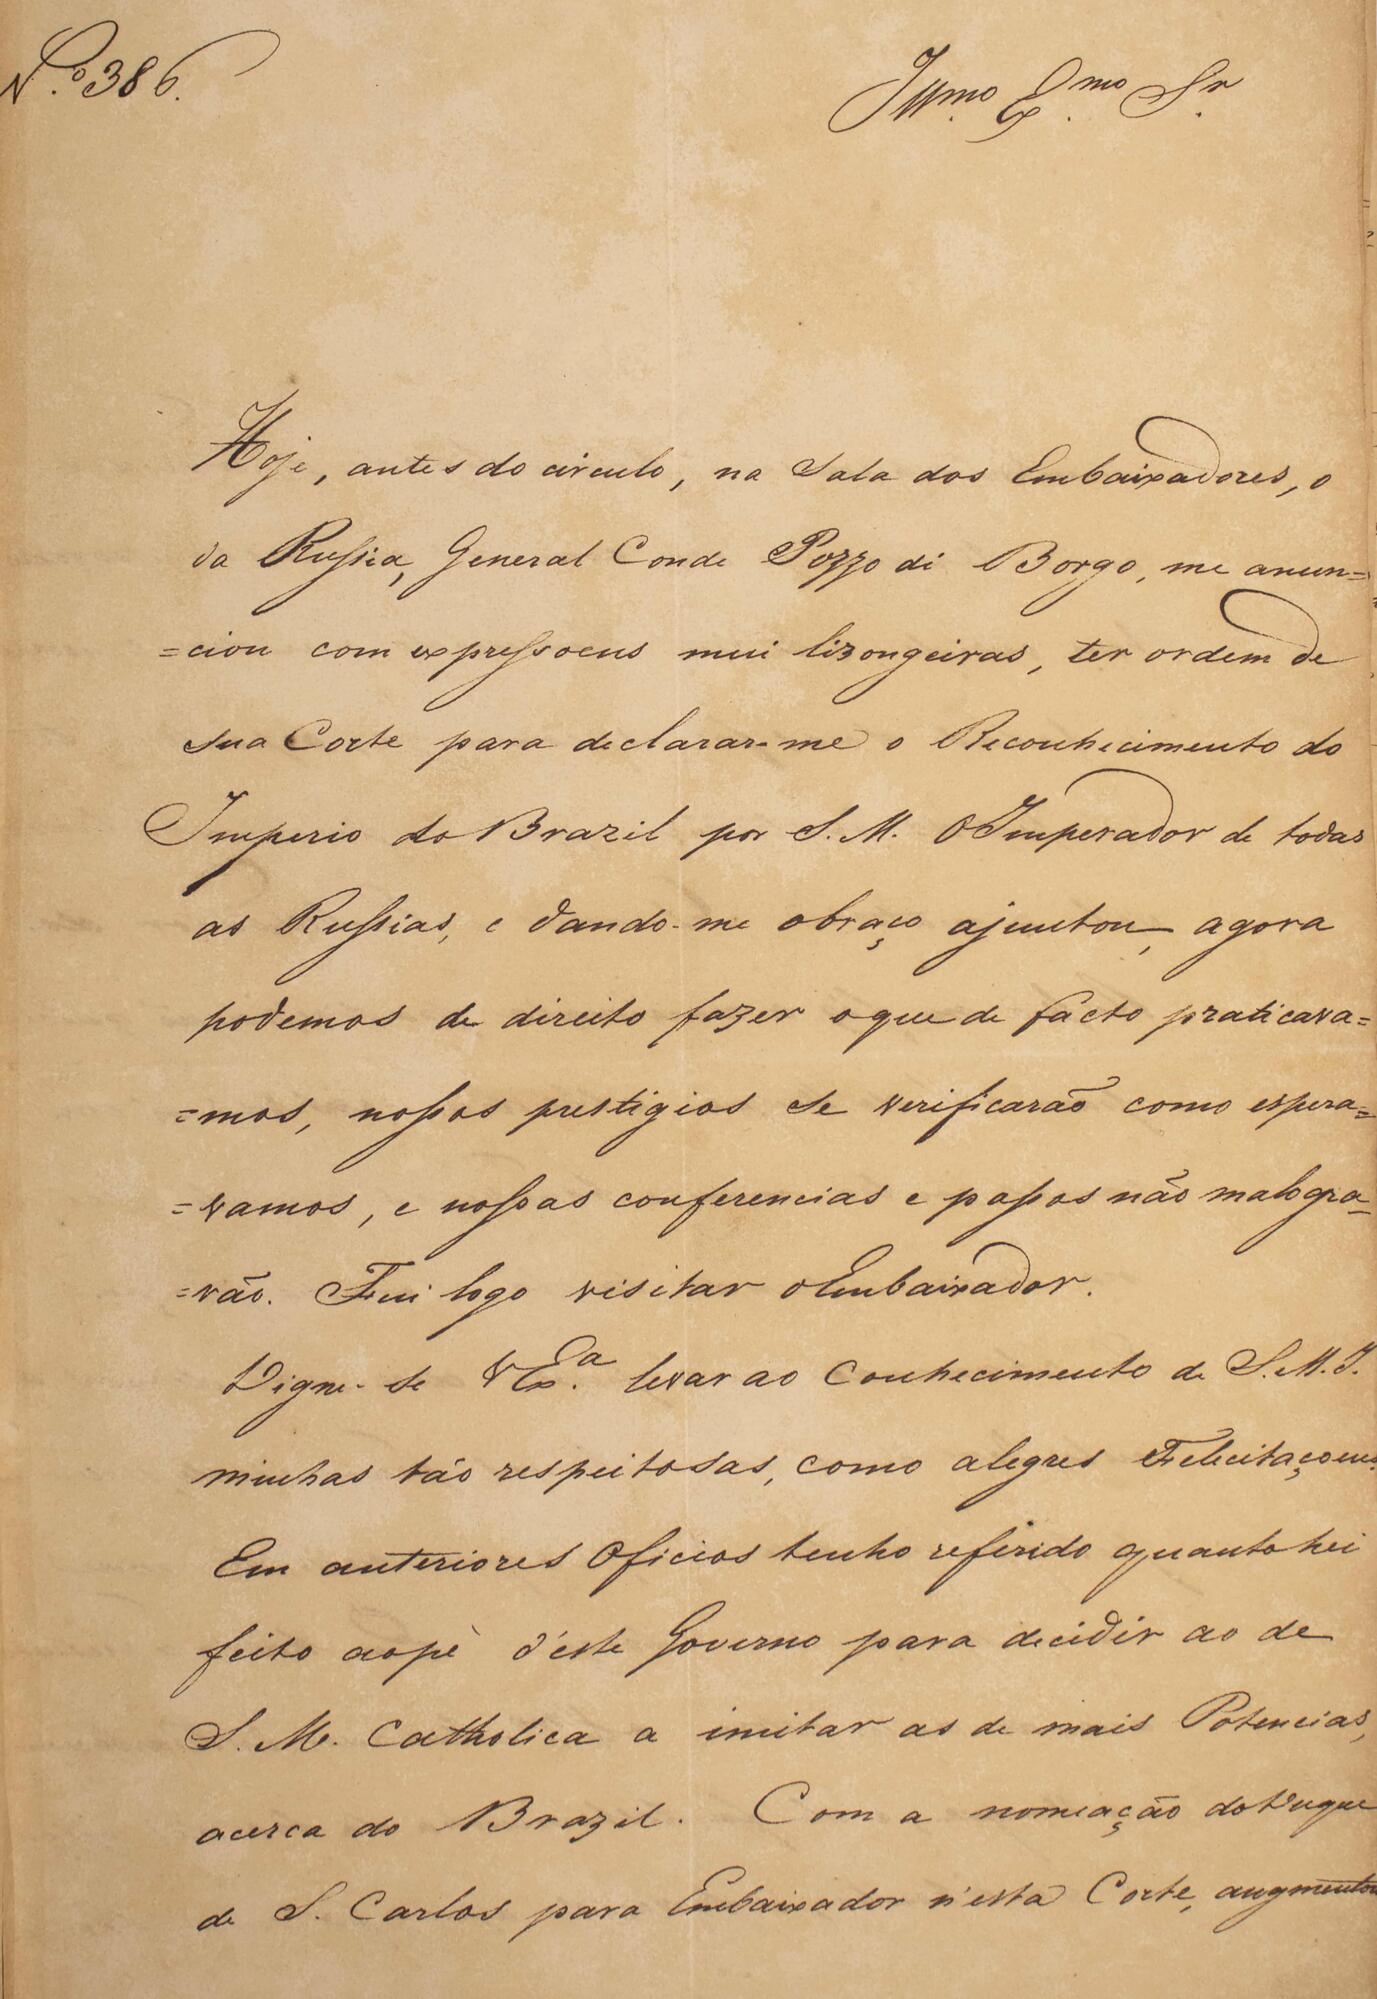 N.º 386.
Illmo. Exmo. Sr.
Hoje, antes do circulo, na Sala dos Embaixadores, o
da Russia, General Conde Pozzo di Borgo, me anun=
=ciou com expressoens mui lizongeiras, ter ordem de
sua Corte para declarar-me o Reconhecimento do
Imperio do Brazil por S. M. O Imperador de todas
as Russias, e dando-me obraço ajuntou, agora
podemos de direito fazer oque de facto praticava=
=mos, nossos prestigios se verificarão como espera=
=vamos, e nossas conferencias e passos não malogra=
=rão. Fui logo visitar o Embaixador.
Digne-se V Exª. levar ao Conhecimento de S. M. I.
minhas tão respeitosas, como alegres Felicitaçoens.
Em anteriores Oficios tenho referido quanto hei
feito aopè d'este Governo para decidir ao de
S. M. Catholica a imitar as de mais Potencias,
acerca do Brazil. Com a nomeação do Duque
de S. Carlos para Embaixador n'esta Corte, augmentou